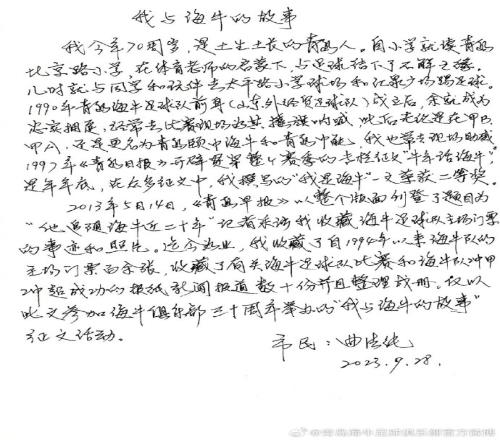 我与海牛的故事
我今年70周岁，是土生土长的青岛人。自小学就读青岛
北京路小学，在体育老师的启蒙下，与足球结下了不解之缘。
儿时就与同学和玩伴去太平路小学球场和汇泉广场踢足球。
1990年青岛海牛足球队前身（山东外经贸足球队）成立后，余就成为
忠实拥趸，经常去比赛现场为其摇旗呐喊，此后无论是在甲B、
甲A，还是更名为青岛颐中海牛和青岛中能，我也常去现场助威
1997年《青岛日报》开辟贯串整个赛季的专栏征文"牛年话海牛"，
是年年底，在众多征文中，我撰写的"我是海牛"一文荣获二等奖。
2013年5月14日，《青岛早报》以整个版面刊登了题目为
"他追随海牛近二十年"记者采访我收藏海牛足球队主场门票
的事迹和照片。迄今为止，我收藏了自1994年以来海牛队的
主场门票百余张，收藏了有关海牛足球队比赛和海牛队冲甲
冲超成功的报纸新闻报道数十份并且整理成册。仅以
此文参加海牛俱乐部三十周年举办的"我与海牛的故事"
征文活动。
市民：曲
2023.9.28.
@青岛海牛足球俱乐部官方微博